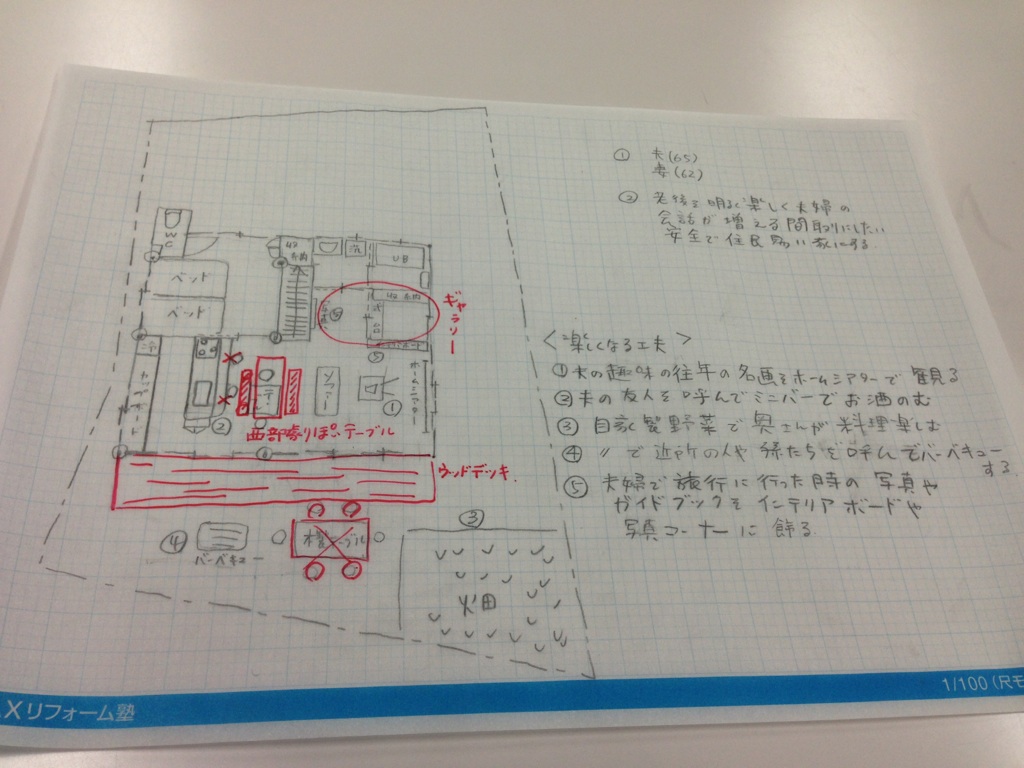 ① 夫(65)
妻(62)
② 老後を明るく楽しく夫婦の
会話が増える間取りにしたい
安全で住民賑い家にする
<楽しくなる工夫>
①夫の趣味の往年の名画をホームシアターで観る
②夫の友人を呼んでミニバーでお酒のむ
③ 自家製野菜で奥さんが料理楽しむ
④ 〃 で近所の人や孫たちを呼んでバーベキュー
する
⑤ 夫婦で旅行に行った時の写真や
ガイドブックをインテリアボードや
写真コーナーに飾る
WC
ベッド
ベッド
収納
洗
UB
収納
⑤
ギャラリー
⑤
カップボード
②
ソファー
①
ホームシアター
西部劇っぽいテーブル
ウッドデッキ
④
バーベキュー
テーブル
③
畑
Xリフォーム塾
1/100(尺モ